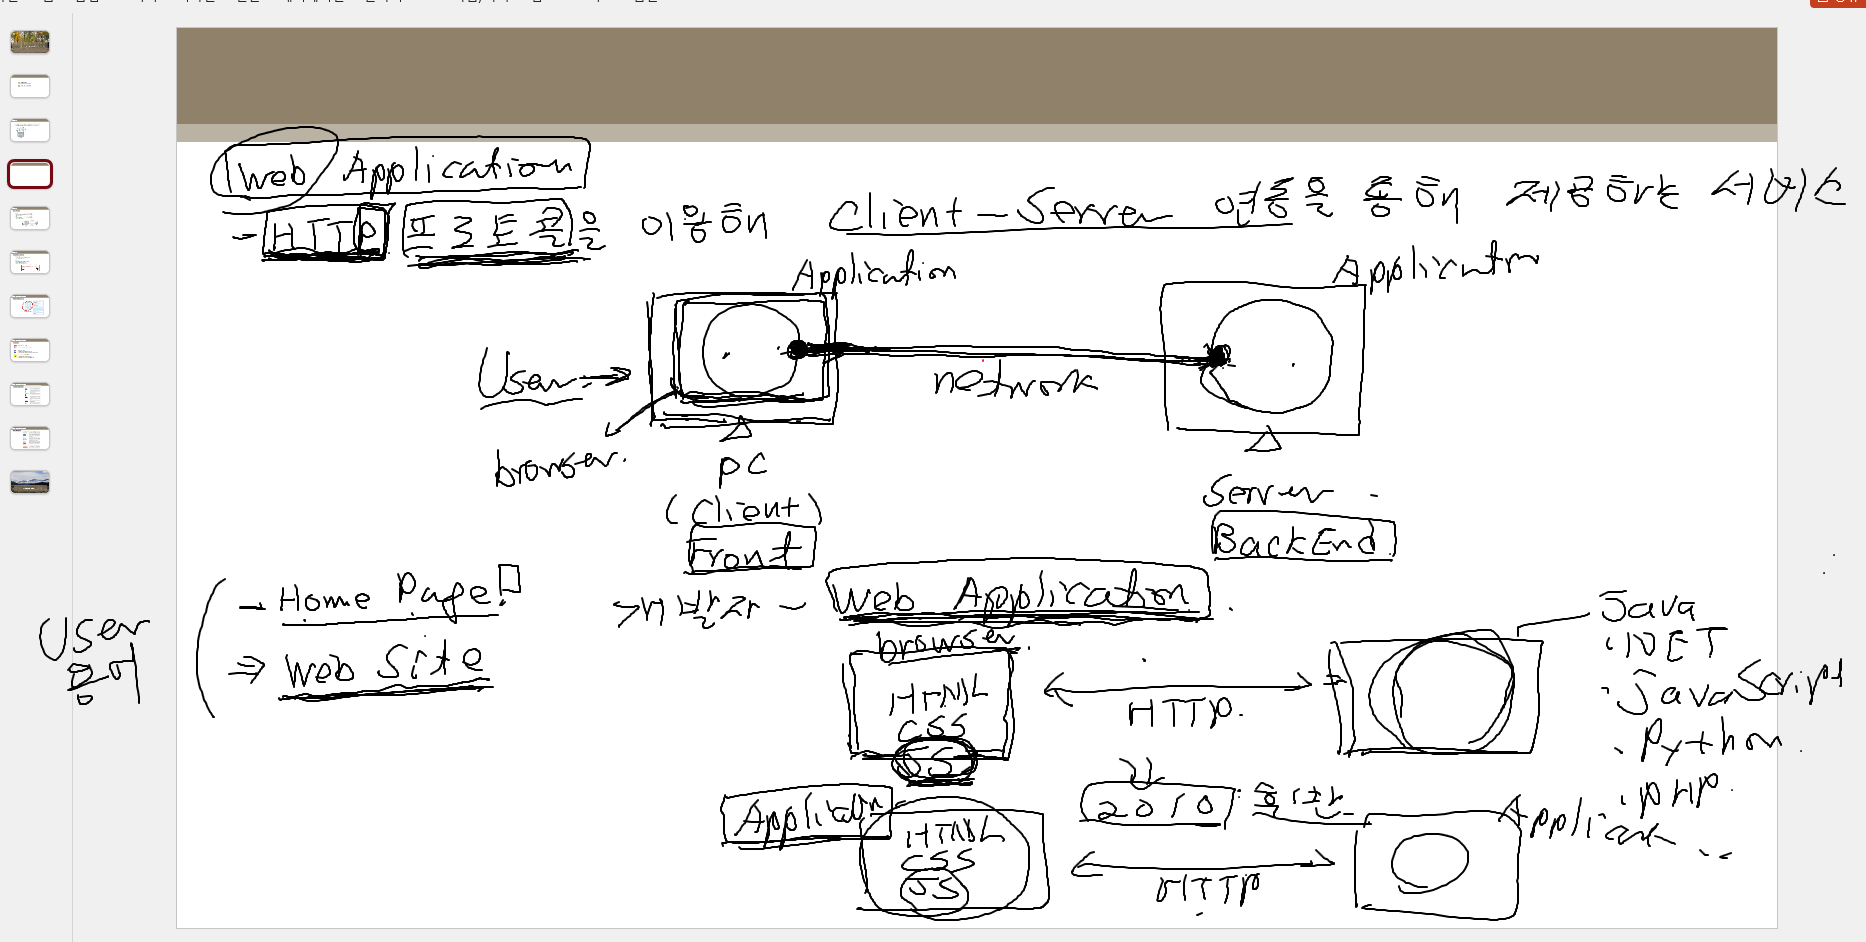 Web Application
- HTTP 프로토콜을 이용해 Client - Server 연동을 통해 제공하는 서비스
Application
Application
User →
network
browser.
PC
(Client)
Front
Server
BackEnd
User 용어
- Home Page
⇒ Web Site
개발자 - Web Application
browser
HTML
CSS
JS
HTTP.
Java
.NET
JavaScript
Python
PHP
Application
HTML
CSS
JS
2010
HTTP